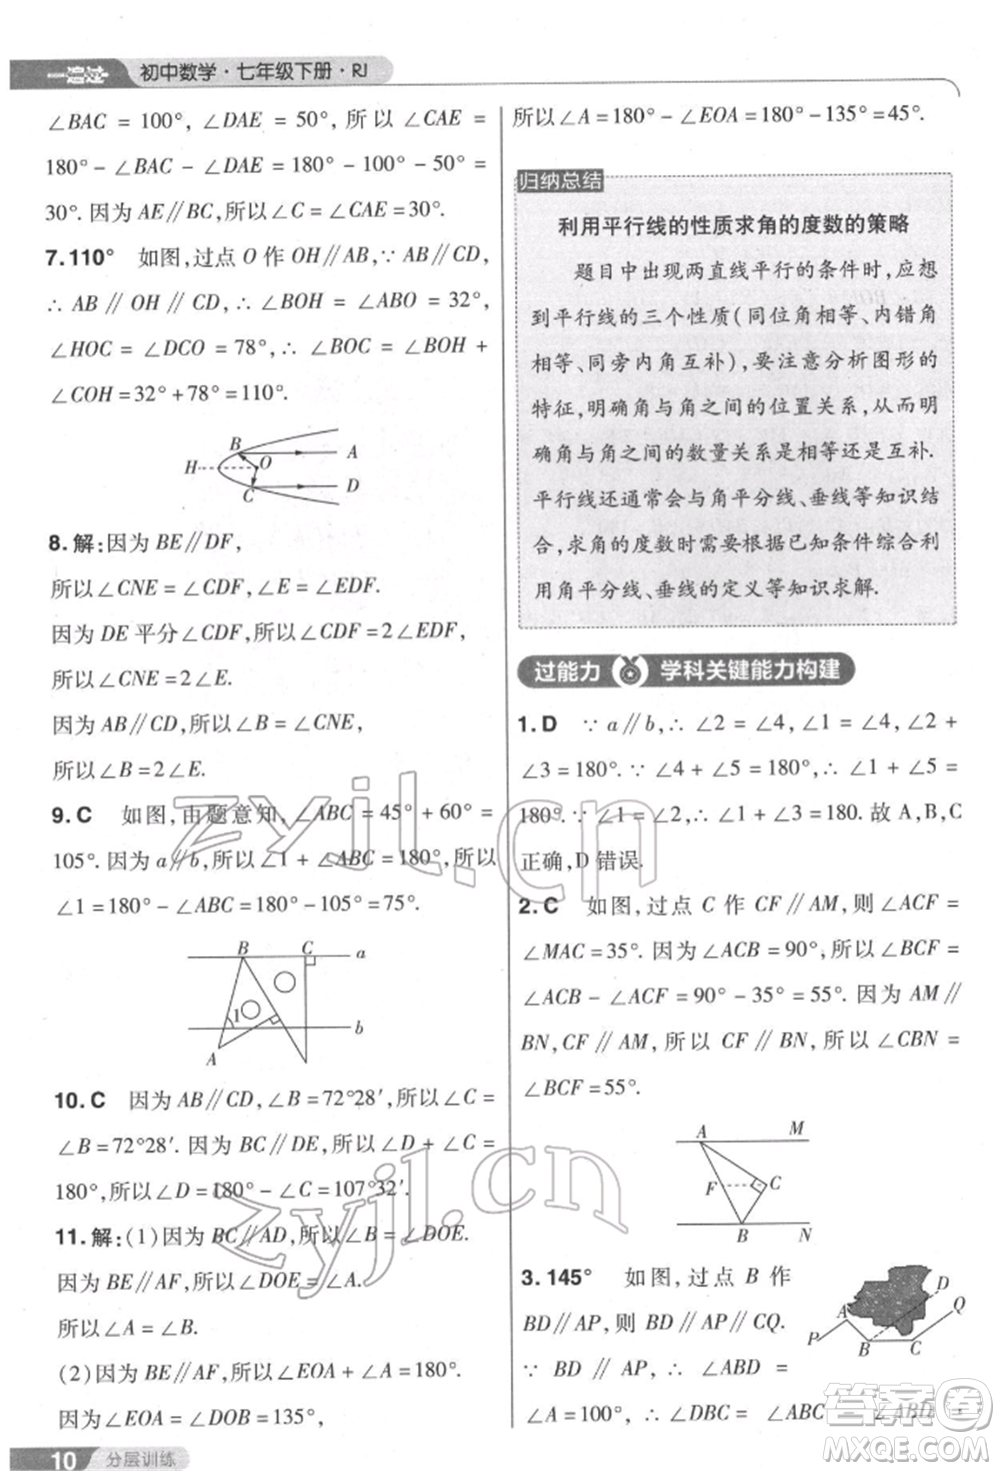 一遍过 初中数学·七年级下册·RJ
∠BAC = 100°, ∠DAE = 50°, 所以 ∠CAE =
180° − ∠BAC − ∠DAE = 180° − 100° − 50° =
30°. 因为 AE∥BC, 所以∠C = ∠CAE = 30°.
7. 110° 如图, 过点 O 作 OH∥AB, ∵ AB∥CD,
∴ AB ∥ OH ∥ CD, ∴ ∠BOH = ∠ABO = 32°,
∠HOC = ∠DCO = 78°, ∴ ∠BOC = ∠BOH +
∠COH = 32° + 78° = 110°.
B A
H O
C D
8. 解: 因为 BE∥DF,
所以∠CNE = ∠CDF, ∠E = ∠EDF.
因为 DE 平分∠CDF, 所以∠CDF = 2∠EDF,
所以∠CNE = 2∠E.
因为 AB∥CD, 所以∠B = ∠CNE,
所以∠B = 2∠E.
9. C 如图, 由题意知, ∠ABC = 45° + 60° =
105°. 因为 a∥b, 所以∠1 + ∠ABC = 180°, 所以
∠1 = 180° − ∠ABC = 180° − 105° = 75°.
B C a
1 b
A
10. C 因为 AB∥CD, ∠B = 72°28′, 所以 ∠C =
∠B = 72°28′. 因为 BC∥DE, 所以∠D + ∠C =
180°, 所以∠D = 180° − ∠C = 107°32′.
11. 解: (1) 因为 BC∥AD, 所以∠B = ∠DOE.
因为 BE∥AF, 所以∠DOE = ∠A.
所以∠A = ∠B.
(2) 因为 BE∥AF, 所以∠EOA + ∠A = 180°.
因为∠EOA = ∠DOB = 135°,
10 分层训练
所以∠A = 180° − ∠EOA = 180° − 135° = 45°.
归纳总结
利用平行线的性质求角的度数的策略
题目中出现两直线平行的条件时,应想
到平行线的三个性质(同位角相等、内错角
相等、同旁内角互补),要注意分析图形的
特征,明确角与角之间的位置关系,从而明
确角与角之间的数量关系是相等还是互补.
平行线还通常会与角平分线、垂线等知识结
合,求角的度数时需要根据已知条件综合利
用角平分线、垂线的定义等知识求解.
过能力 学科关键能力构建
1. D ∵ a∥b, ∴ ∠2 = ∠4, ∠1 = ∠4, ∠2 +
∠3 = 180°. ∵ ∠4 + ∠5 = 180°, ∴ ∠1 + ∠5 =
180°. ∵ ∠1 = ∠2, ∴ ∠1 + ∠3 = 180. 故 A, B, C
正确, D 错误.
2. C 如图, 过点 C 作 CF∥AM, 则 ∠ACF =
∠MAC = 35°. 因为 ∠ACB = 90°, 所以 ∠BCF =
∠ACB − ∠ACF = 90° − 35° = 55°. 因为 AM∥
BN, CF ∥ AM, 所以 CF ∥ BN, 所以 ∠CBN =
∠BCF = 55°.
A M
F C
B N
3. 145° 如图, 过点 B 作
BD∥AP, 则 BD∥AP∥CQ.
∵ BD ∥ AP, ∴ ∠ABD =
∠A = 100°, ∴ ∠DBC = ∠ABC − ∠ABD =
A D Q
P B C
zyjl.cn
zyjl.cn
答案圈
MXQE.COM